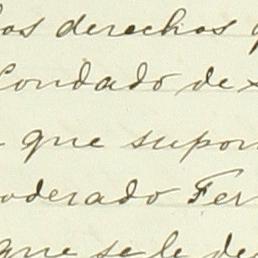 los derechos
Condado de
que supon
oderado Fer
que se le de